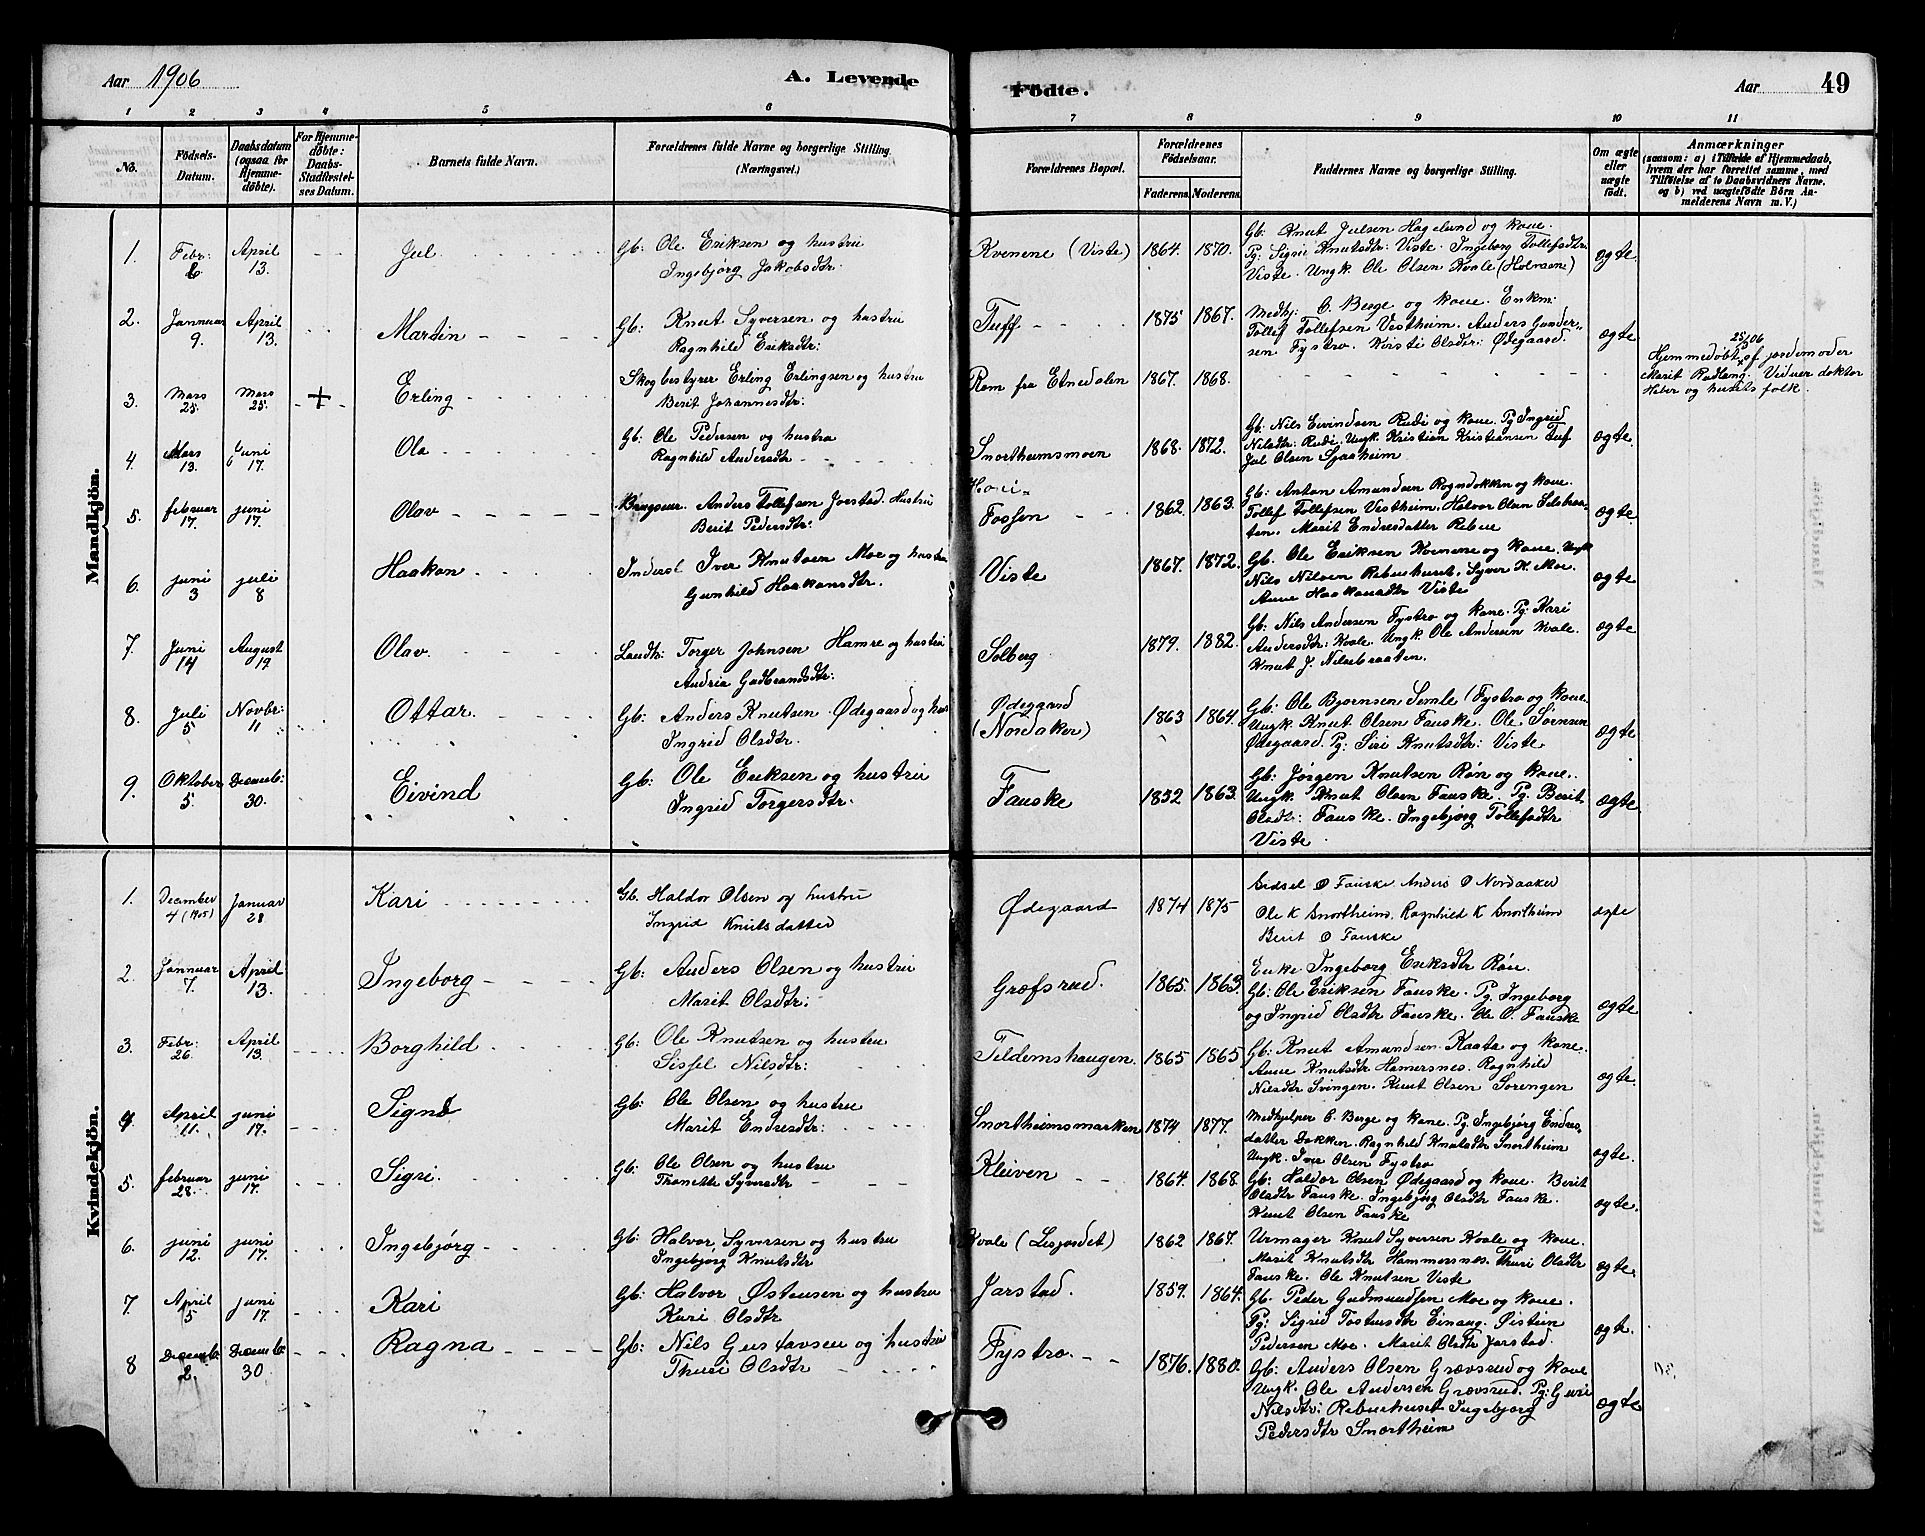 Aar 1906
A. Levende
Födte.
Aar
49
1 2 3 4 5 6 7 8 9 10 11
No.
Födsels-Datum.
Daabsdatum (ogsaa for Hjemmedøbte).
For Hjemmedöbte: Daabs-Stadfæstelses Datum.
Barnets fulde Navn.
Forældrenes fulde Navne og borgerlige Stilling. (Næringsvei.)
Forældrenes Bopæl.
Forældrenes Födselsaar.
Faderens. Moderens.
Faddernes Navne og borgerlige Stilling.
Om ægte eller uægte födt.
Anmærkninger
(saasom: a) i Tilfælde af Hjemmedaab, hvem der har forrettet samme, med Tilföielse af to Daabsvidners Navne, og b) ved uægtefödte Börn Anmelderens Navn m. V.)
Mandkjön.
1. Febr: 6 April 13. Jul Gb: Ole Eriksen og hustru
Ingebjörg Jakobsdtr: Kvenene (Viste) 1864. 1870.
Gb: Knut Julsen Hagelund og kone.
Pg: Sigri Knutsdtr: Viste. Ingeborg Tollefsdtr
Viste. Ungk. Ole Olsen Kvale (Holmen) ægte.
2. Januar 9. April 13. Martin Gb: Knut Syversen og hustru
Ragnhild Eriksdtr: Tuff 1875 1867.
Medhj: C. Berge og kone. Enkm:
Tollef Tollefsen Vestheim. Anders Gundersen
Fystro. Kristi Olsdtr: Ødegaard. ægte
3. Mars 25. Mars 25. + Erling Skogbestyrer Erling Erlingsen og hustru
Berit Johannesdtr: Rem fra Etnedalen 1867. 1868.
25/3 06
Hjemmedøbt af jordemoder
Marit Rudlang. Vidner doktor
Heber og husets folk.
4. Mars 13. Juni 17. Ola Gb: Ole Pedersen og hustru
Ragnhild Andersdtr Snortheimsmoen 1868. 1872.
Gb: Nils Eivindsen Rudi og kone. Pg Ingrid
Nilsdtr: Rudi. Ungk. Kristian Kristiansen Tuf
Jul Olsen Sjaaheim ægte.
5. februar 17. juni 17. Olav Brugseier Anders Tollefsen Jorstad. Hustru
Berit Pedersdtr: Fossen 1862. 1863.
Gb: Anton Amundsen Rogndokken og kone.
Tollef Tollefsen Vestheim. Halvor Olsen
Marit Endresdatter Rebne ægte.
6. juni 3 juli 8 Haakon Inderst Iver Knutsen Moe og hustru
Gunhild Haakonsdtr. Viste 1867. 1872.
Gb. Ole Eriksen Kvenene og kone. Ungk
Nils Nilsen Rebnehuset. Syver K. Moe.
Anne Haakonsdtr Viste ægte
7. Juni 14 August 19 Olav Landh: Torger Johnsen Hamre og hustru
Andria Gudbrandsdtr: Solberg 1879. 1882.
Gb: Nils Andersen Fystro og kone. Pg: Kari
Andersdtr: Kvale. Ungk. Ole Andersen Kvale.
Knut J. Nilsebraaten. ægte
8. Juli 5 Novbr: 11 Ottar. Gb: Anders Knutsen Ødegaard og hus
Ingrid Olsdtr. Ødegaard (Nordaker) 1863 1864.
Gb: Ole Bjornsen Semle (Fystro og kone.
Ungk Knut Olsen Fauske. Ole Sörnsen
Ødegaard. Pg: Siri Knutsdtr: Viste ægte
9. Oktober 5. Decmb: 30. Eivind Gb: Ole Eriksen og hustru
Ingrid Torgersdtr. Fauske 1852 1863.
Gb: Jörgen Knutsen Rön og kone.
Ungk. Knut Olsen Fauske. Pg. Berit
Olsdt: Fauske. Ingebjörg Tollefsdtr
Viste ægte
Kvindekjön.
1. December 4 (1905) Januar 28 Kari Gb. Haldor Olsen og hustru
Ingrid Knutsdatter Ødegaard 1874 1875
Sidsel O Fauske Anders O Nordaaker
Ole K Snortheim. Ragnhild K Snortheim
Berit O Fauske ægte
2. Januar 7. April 13. Ingeborg Gb: Anders Olsen og hustru
Marit Olsdtr: Græfsrud. 1865. 1863.
Enke Ingeborg Eriksdtr Röu.
Gb: Ole Eriksen Fauske. Pg. Ingeborg
og Ingrid Olsdtr Fauske. Ole O. Fauske ægte
3. Febr: 26. April 13. Borghild Gb: Ole Knutsen og hustru
Sissel Nilsdtr: Tildemshaugen. 1865 1865
Gb: Knut Amundsen Kaata og kone.
Anne Knutsdtr Hamersnes. Ragnhild
Nilsdtr Svingen. Knut Olsen Sorengen ægte
4 April 11. juni 17. Signe Gb: Ole Olsen og hustru
Marit Endresdtr: Snortheimsmarken 1874 1877.
Medhjelper C. Berge og kone. Pg. Ingebjörg Endresdatter
Dokken. Ragnhild Knutsdtr Snortheim
Ungk. Iver Olsen Fystro ægte.
5. februar 28. juni 17. Sigri. Gb: Ole Olsen og hustru
Thonette Syversdtr Kleiven 1864. 1868.
Gb: Haldor Olsen Ødegaard og kone. Berit
Olsdtr Fauske. Ingebjörg Olsdtr Fauske.
Knut Olsen Fauske ægte.
6. juni 12. juni 17. Ingebjörg Gb: Halvor Syversen og hustru
Ingebjörg Knutsdtr Kvale (Lisjordet) 1862 1867.
Urmager Knut Syversen Kvale og kone.
Marit Knutsdtr Hammersnes. Thuri Olsdtr
Fauske. Ole Knutsen Viste ægte.
7. April 5 juni 17. Kari Gb: Halvor Østensen og hustru
Kari Olsdtr Jarstad. 1859. 1864.
Gb. Peder Gudmundsen Moe og kone.
Pg: Sigrid Tostensdtr Einang. Øistein
Pedersen Moe. Marit Olsdtr Jarstad. ægte.
8 Decemb: 2. Decemb: 30 Ragna Gb: Nils Gustavsen og hustru
Thuri Olsdtr Fystro. 1876. 1880.
Gb: Anders Olsen Grævsrud og kone
Ungk. Ole Andersen Grævsrud. Pg: Guri
Nilsdtr: Rebnehuset Ingebjörg
Pedersdtr Snortheim ægte